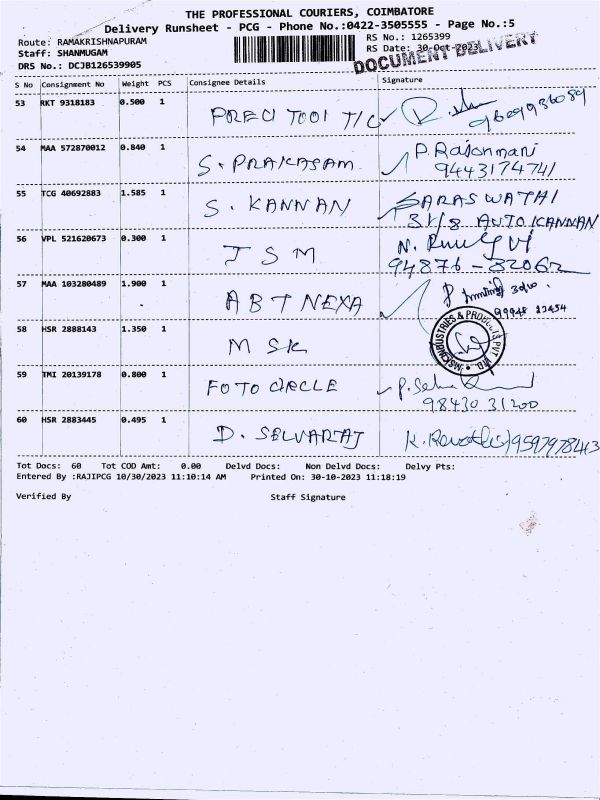 THE PROFESSIONAL COURIERS, COIMBATORE
Delivery Runsheet - PCG - Phone No.:0422-3505555 - Page No.:5
Route: RAMAKRISHNAPURAM
RS No.: 1265399
Staff: SHANMUGAM
RS Date: 30-Oct-2023
DRS No.: DCJB126539905
DOCUMENT DELIVERY
S No Consignment No Weight PCS Consignee Details Signature
53 RKT 9318183 0.500 1 PRECI TOOl T/C
54 MAA 572870012 0.840 1 S. PRAKASAM P. Rajonmani
9443174741
55 TCG 40692883 1.585 1 S. KANNAN SARASWATHI
31/8 AUTO KANNAN
56 VPL 521620673 0.300 1 JSM
94876-32062
57 MAA 103280489 1.900 1 ABT NEXA
99948 23454
58 HSR 2888143 1.350 1 MSK MSK INDUSTRIES & PRODUCTS PVT LTD
59 TMI 20139178 0.800 1 FOTO CIRCLE
98430 31200
60 HSR 2883445 0.495 1 D. SELVARAJ K. Revathi 9597978413
Tot Docs: 60 Tot COD Amt: 0.00 Delvd Docs: Non Delvd Docs: Delvy Pts:
Entered By :RAJIPCG 10/30/2023 11:10:14 AM Printed On: 30-10-2023 11:18:19
Verified By Staff Signature